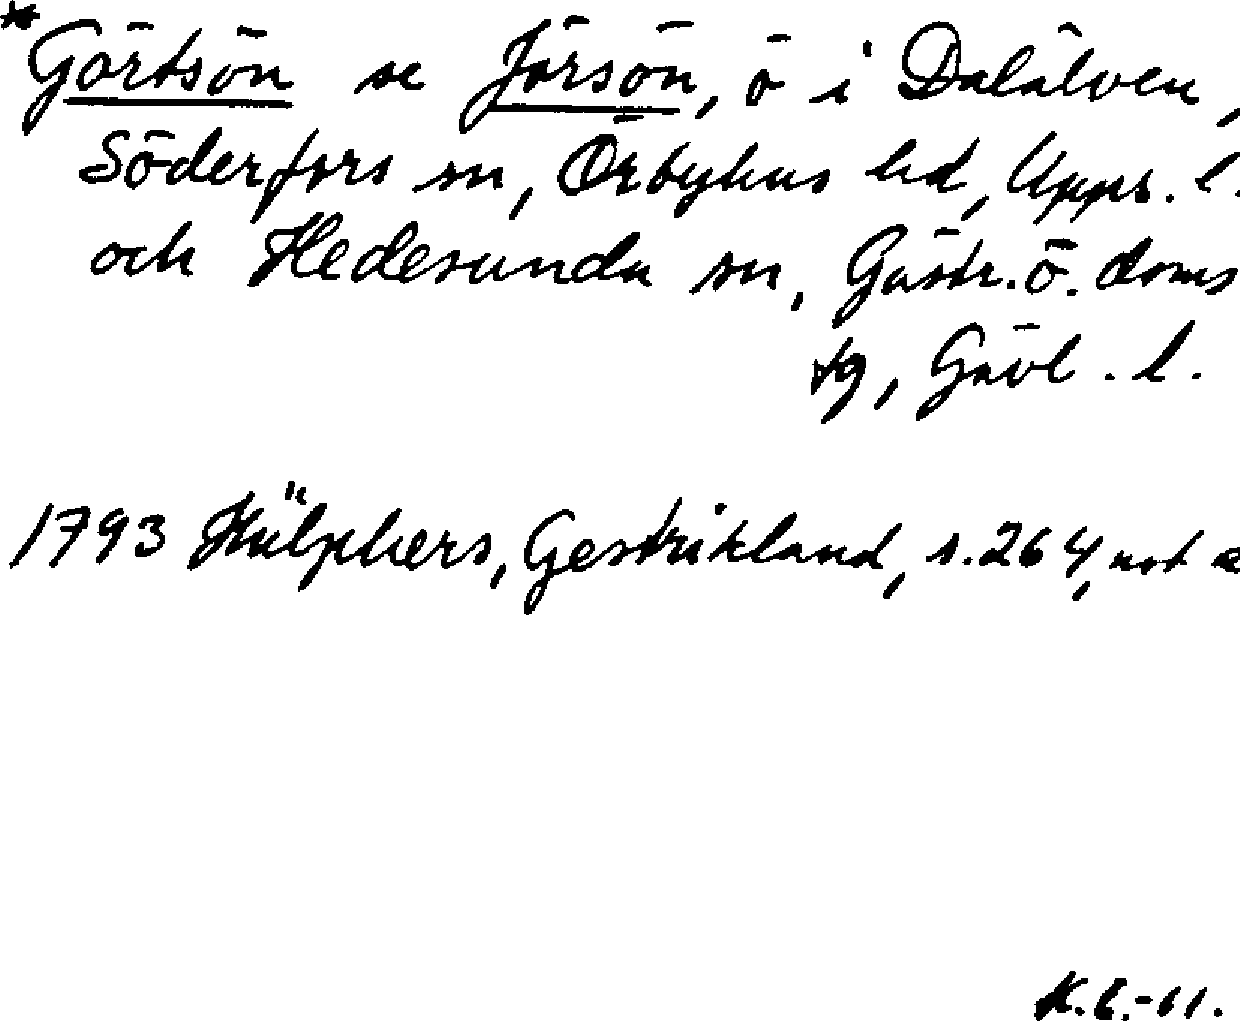 *Görtsön se Jörsön, ö i Dalälven,
Söderfors sn, Örbyhus hd, Upps. l.
och Hedesunda sn, Gästr. ö. doms
tg, Gävl. l.
1793 Hülphers, Gestrikland, s. 264, not